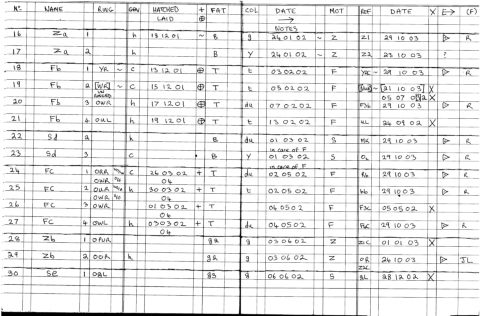 No NAME RING GEN HATCHED LAID + FAT COL DATE → NOTES MOT REF DATE X E→ (F)
16 Za 1 h 13 12 01 ~ B g 24 01 02 ~ Z Z1 29 10 03 ▷ R
17 Za 2 h B Y 24 01 02 ~ Z Z2 23 10 03 ?
18 Fb 1 YR ~ C 13 12 01 ⊕ T t 03 02 02 F 29 10 03 ▷ R
19 Fb 2 C 15 12 01 ⊕ T t 05 02 02 F 21 10 03 X
20 Fb 3 OWR h 17 12 01 ⊕ T du 07 02 02 F 29 10 03 ▷ R
21 Fb 4 OWL h 19 12 01 ⊕ T t 13 02 02 F 24 09 02 X
22 Sd 2 h B du 01 03 02 S 29 10 03 ▷ R
in care of F
23 Sd 3 C B Y 01 03 02 29 10 03 ▷ R
in care of F
24 FC 1 ORR C 26 03 02 + T du 02 05 02 F 29 10 03 ▷ R
OWR 04
25 FC 2 OUR h 30 03 02 + T t 02 05 02 F 29 10 03 ▷ R
OWR 04
26 FC 3 OWR 01 03 02 + T 04 05 02 F F3C 05 05 02 X
04
27 FC 4 OWL h 03 03 02 + T du 04 05 02 F 29 10 03 ▷ R
04
28 Zb 1 OPUR gR g 03 06 02 Z ZC 01 01 03 X
29 Zb 2 OOR h gR g 03 06 02 Z OR 24 10 03 ▷ JL
30 Se 1 OBL g 06 06 02 S gL 28 12 02 X